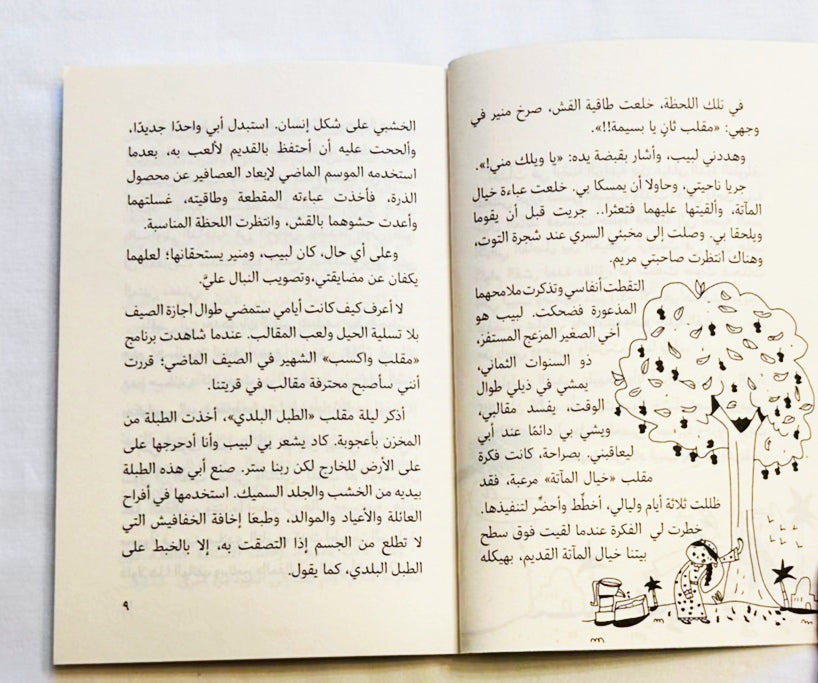 في تلك اللحظة، خلعت طاقية القش، صرخ منير في
وجهي: «مقلب ثانٍ يا بسيمة!!».
وهددني لبيب، وأشار بقبضة يده: «يا ويلك مني!».
جريا ناحيتي، وحاولا أن يمسكا بي. خلعت عباءة خيال
المآتة، وألقيتها عليهما فتعثرا.. جريت قبل أن يقوما
ويلحقا بي. وصلت إلى مخبئي السري عند شجرة التوت،
وهناك انتظرت صاحبتي مريم.
التقطت أنفاسي وتذكرت ملامحهما
المذعورة فضحكت. لبيب هو
أخي الصغير المزعج المستفز،
ذو السنوات الثماني،
يمشي في ذيلي طوال
الوقت، يفسد مقالبي،
ويشي بي دائمًا عند أبي
ليعاقبني. بصراحة، كانت فكرة
مقلب «خيال المآتة» مرعبة، فقد
ظللت ثلاثة أيام وليالي، أخطِّط وأحضِّر لتنفيذها.
خطرت لي الفكرة عندما لقيت فوق سطح
بيتنا خيال المآتة القديم، بهيكله
الخشبي على شكل إنسان. استبدل أبي واحدًا جديدًا،
وألححت عليه أن أحتفظ بالقديم لألعب به، بعدما
استخدمه الموسم الماضي لإبعاد العصافير عن محصول
الذرة، فأخذت عباءته المقطعة وطاقيته، غسلتهما
وأعدت حشوهما بالقش، وانتظرت اللحظة المناسبة.
وعلى أي حال، كان لبيب، ومنير يستحقانها؛ لعلهما
يكفان عن مضايقتي،وتصويب النبال عليَّ.
لا أعرف كيف كانت أيامي ستمضي طوال اجازة الصيف
بلا تسلية الحيل ولعب المقالب. عندما شاهدت برنامج
«مقلب واكسب» الشهير في الصيف الماضي؛ قررت
أنني سأصبح محترفة مقالب في قريتنا.
أذكر ليلة مقلب «الطبل البلدي»، أخذت الطبلة من
المخزن بأعجوبة. كاد يشعر بي لبيب وأنا أدحرجها على
على الأرض للخارج لكن ربنا ستر. صنع أبي هذه الطبلة
بيديه من الخشب والجلد السميك. استخدمها في أفراح
العائلة والأعياد والموالد، وطبعًا إخافة الخفافيش التي
لا تطلع من الجسم إذا التصقت به، إلا بالخبط على
الطبل البلدي، كما يقول.
٩